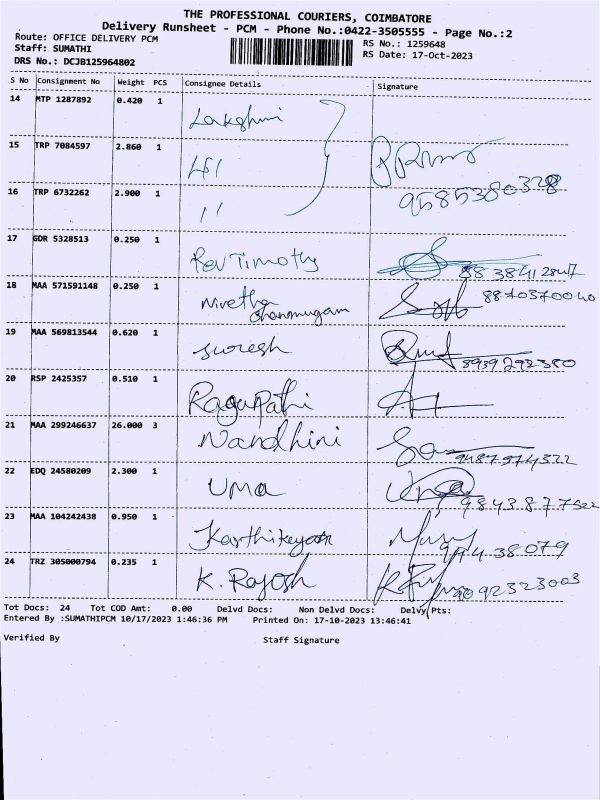 THE PROFESSIONAL COURIERS, COIMBATORE
Delivery Runsheet - PCM - Phone No.:0422-3505555 - Page No.:2
Route: OFFICE DELIVERY PCM
RS No.: 1259648
Staff: SUMATHI
RS Date: 17-Oct-2023
DRS No.: DCJB125964802
S No Consignment No Weight PCS Consignee Details Signature
14 MTP 1287892 0.420 1 Lakshmi
15 TRP 7084597 2.860 1
16 TRP 6732262 2.900 1 11 9585380328
17 GDR 5328513 0.250 1 Rev Timothy
18 MAA 571591148 0.250 1 Nivetha Shanmugam 8870370040
19 MAA 569813544 0.620 1 Suresh 8939292380
20 RSP 2425357 0.510 1 Ragupathi
21 MAA 299246637 26.000 3 Nandhini 9487574322
22 EDQ 24580209 2.300 1 UMA
23 MAA 104242438 0.950 1 Karthikeyan
24 TRZ 305000794 0.235 1 K. Rajesh
Tot Docs: 24 Tot COD Amt: 0.00 Delvd Docs: Non Delvd Docs: Delvy Pts:
Entered By :SUMATHIPCM 10/17/2023 1:46:36 PM Printed On: 17-10-2023 13:46:41
Verified By Staff Signature